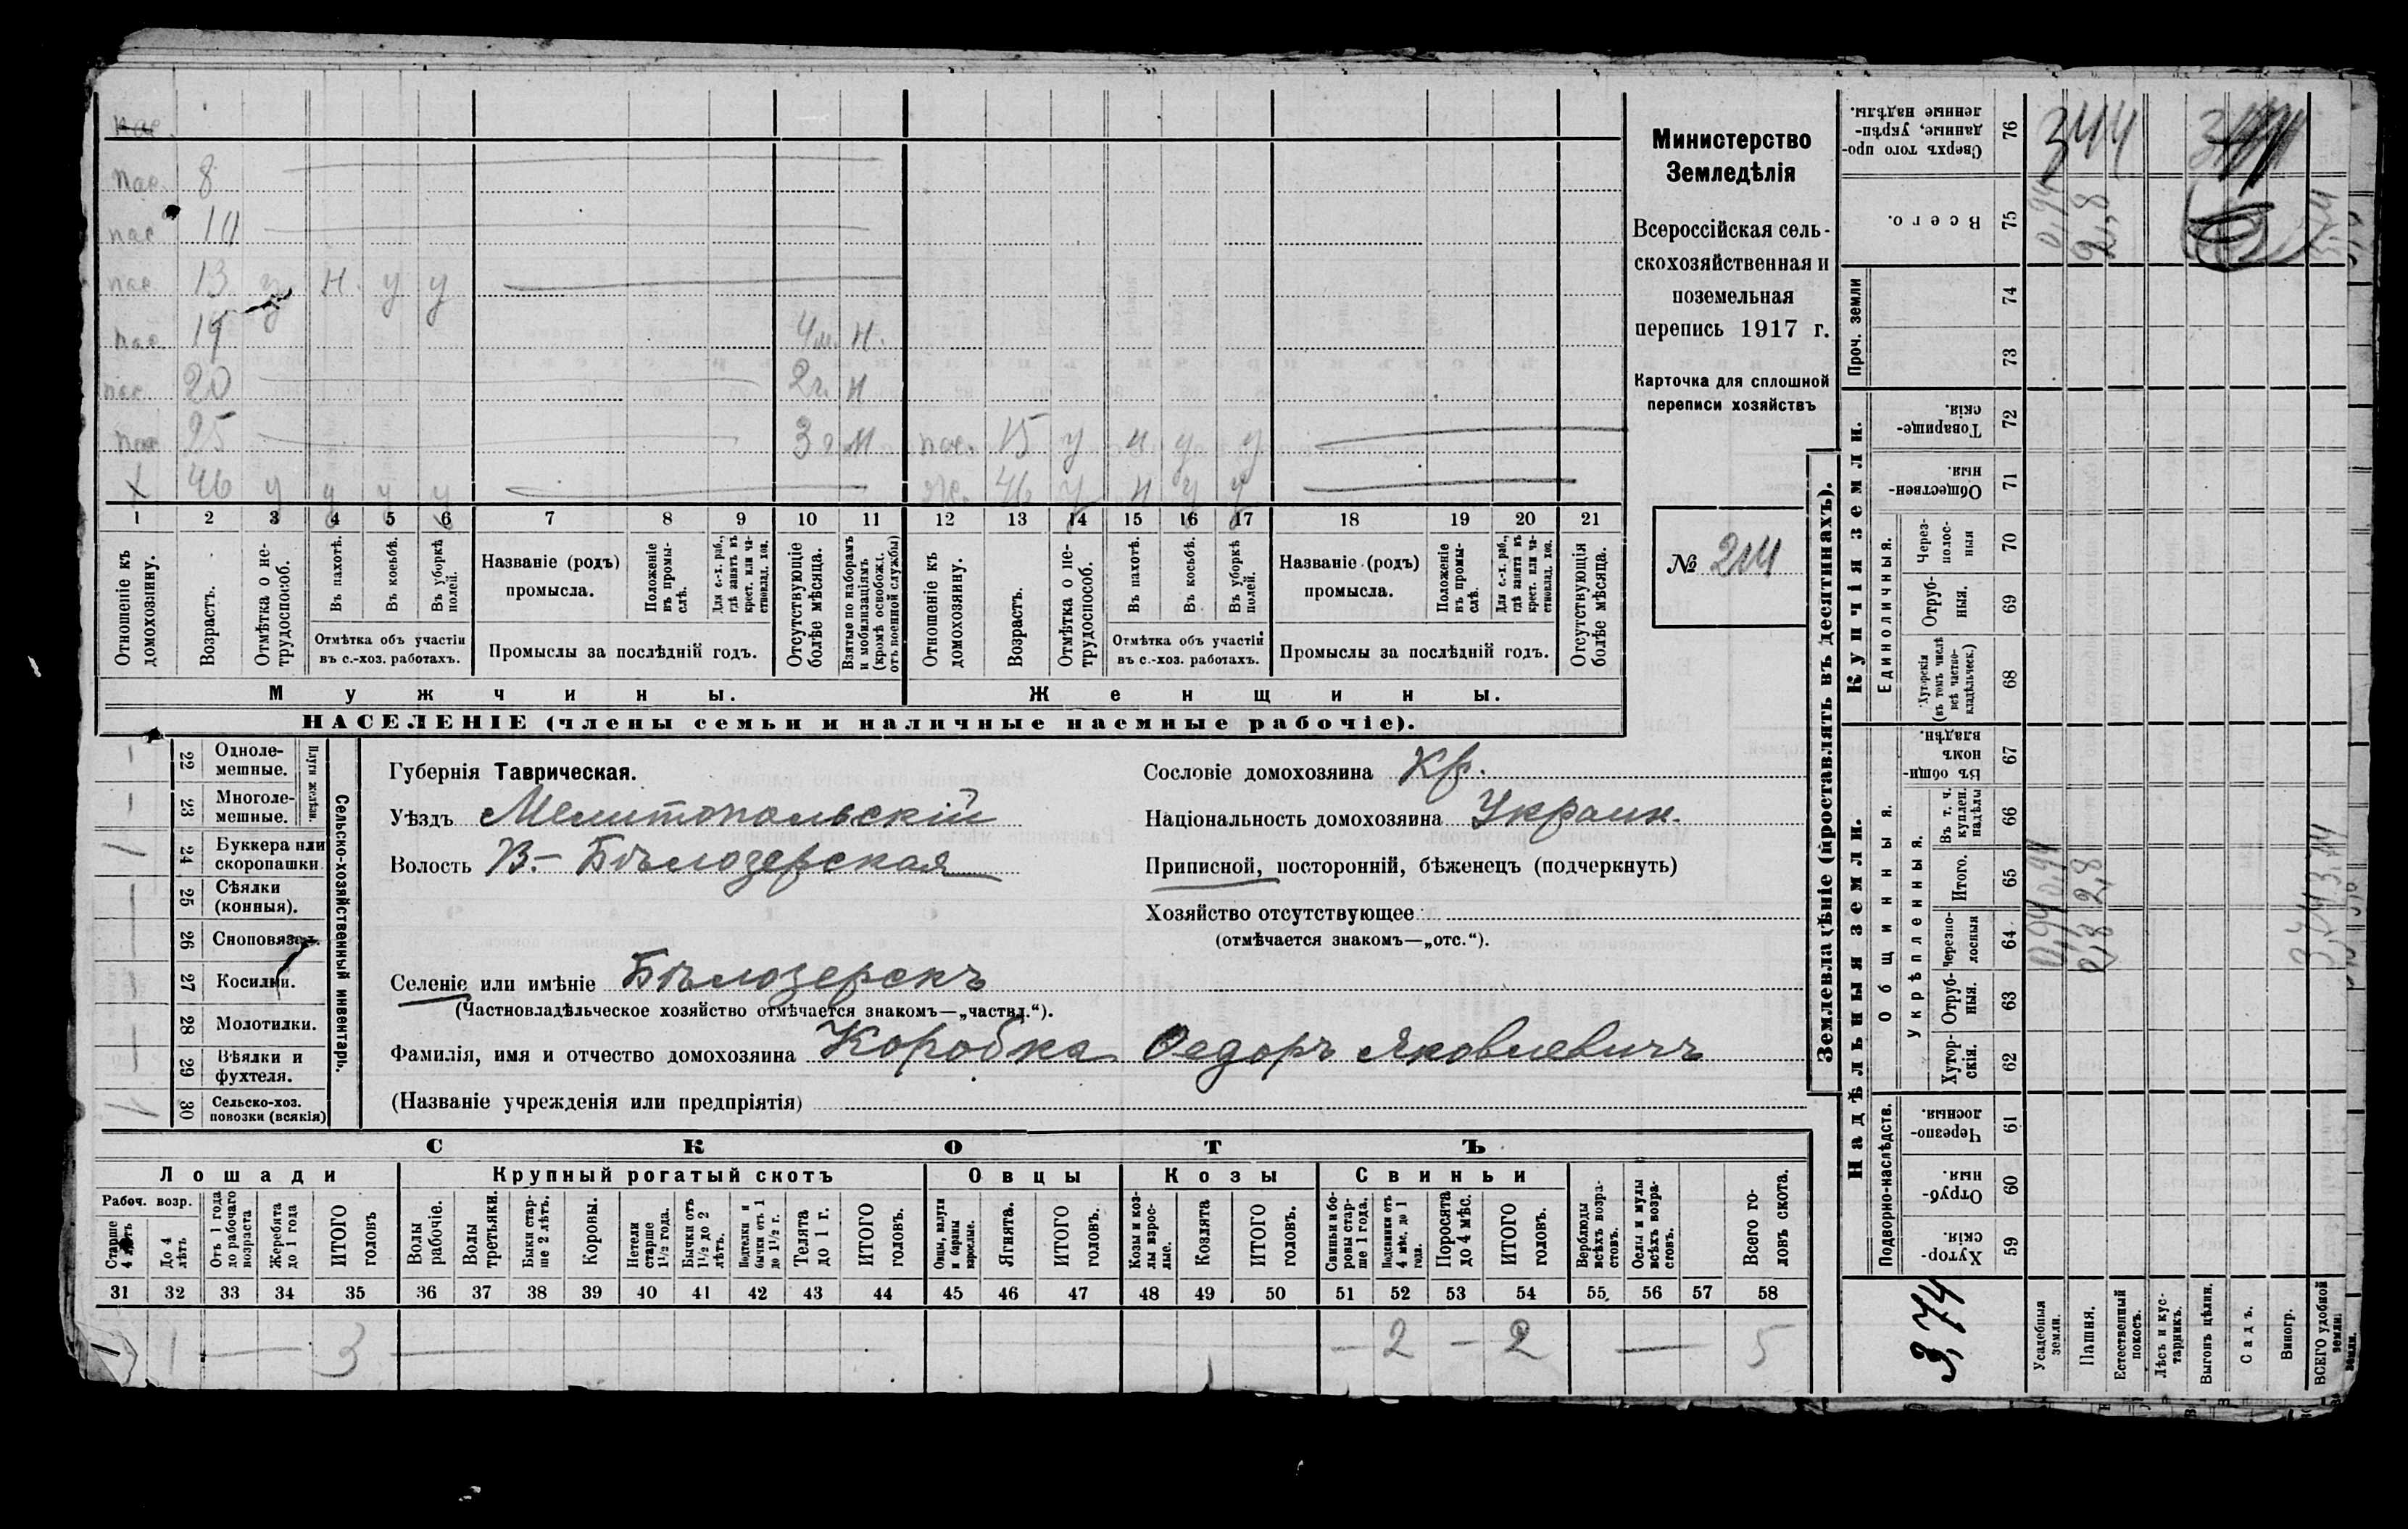 пас.
пас. 8
пас 14
пас. 13 у н. у у
пас. 19 4м. н.
пас 20 2г. н
пас 25 3 г. н пас. 15 у н у у
х 46 у у у у ж. 46 у н у у
1 2 3 4 5 6 7 8 9 10 11 12 13 14 15 16 17 18 19 20 21
Отношеніе къ домохозяину.
Возрастъ.
Отмѣтка о нетрудоспособ.
Въ пахотѣ.
Въ косьбѣ.
Въ уборкѣ полей.
Отмѣтка объ участіи въ с.-хоз. работахъ.
Названіе (родъ) промысла.
Положеніе въ промыслѣ.
Для с.-х. раб., гдѣ занятъ въ крест. или частновлад. хоз.
Промыслы за послѣдній годъ.
Отсутствующіе болѣе мѣсяца.
Взятые по наборамъ и мобилизаціямъ (кромѣ освобожд. отъ военной службы)
Отношеніе къ домохозяину.
Возрастъ.
Отмѣтка о нетрудоспособ.
Въ пахотѣ.
Въ косьбѣ.
Въ уборкѣ полей.
Отмѣтка объ участіи въ с.-хоз. работахъ.
Названіе (родъ) промысла.
Положеніе въ промыслѣ.
Для с.-х. раб., гдѣ занятъ въ крест. или частновлад. хоз.
Промыслы за послѣдній годъ.
Отсутствующія болѣе мѣсяца.
Мужчины.
Женщины.
НАСЕЛЕНІЕ (члены семьи и наличные наемные рабочіе).
Министерство
Земледѣлія
Всероссійская сель-
скохозяйственная и
поземельная
перепись 1917 г.
Карточка для сплошной
переписи хозяйствъ
№ 214
22 Одноле-
мешные.
23 Многоле-
мешные.
Плуги желѣзн.
24 Буккера или
скоропашки
25 Сѣялки
(конныя).
26 Сноповязал.
27 Косилки.
28 Молотилки.
29 Вѣялки и
фухтеля.
30 Сельско-хоз.
повозки (всякія)
Сельско-хозяйственный инвентарь.
Губернія Таврическая.
Уѣздъ Мелитопольскій
Волость В.- Бѣлозерская
Сословіе домохозяина Кр.
Національность домохозяина Украин.
Приписной, посторонній, бѣженецъ (подчеркнуть)
Хозяйство отсутствующее
(отмѣчается знакомъ—„отс.“).
Селеніе или имѣніе Бѣлозерскъ
(Частновладѣльческое хозяйство отмѣчается знакомъ—„частвд.“).
Фамилія, имя и отчество домохозяина Коробка Ѳедоръ Яковлевичъ
(Названіе учрежденія или предпріятія)
СКОТЪ
Лошади Крупный рогатый скотъ Овцы Козы Свиньи
Рабоч. возр.
Старше 4 лѣтъ
До 4 лѣтъ
Отъ 1 года до рабочаго возраста
Жеребята до 1 года
ИТОГО головъ
Волы рабочіе.
Волы третьяки.
Быки старше 2 лѣтъ.
Коровы.
Нетели старше 1 1/2 года.
Бычки отъ 1 1/2 до 2 лѣтъ.
Подтелки и бычки отъ 1 до 1 1/2 г.
Телята до 1 г.
ИТОГО головъ.
Овцы, валухи и бараны взрослые.
Ягнята.
ИТОГО головъ.
Козы и козлы взрослые.
Козлята
ИТОГО головъ.
Свиньи и боровы старше 1 года.
Подсвинки отъ 4 мѣс. до 1 года.
Поросята до 4 мѣс.
ИТОГО головъ.
Верблюды всѣхъ возрастовъ.
Ослы и мулы всѣхъ возрастовъ.
Всего головъ скота.
31 32 33 34 35 36 37 38 39 40 41 42 43 44 45 46 47 48 49 50 51 52 53 54 55 56 57 58
1 1 — 3 — 2 — 2 — 5
Землевладѣніе (проставлять въ десятинахъ).
Сверхъ того проданные, укрѣпленные надѣлы. 76
Всего. 75
Проч. земли
74
73
Купчія земли.
Товарищескія. 72
Общественныя. 71
Единоличныя.
Черезполосныя 70
Отрубныя. 69
Хуторскія (въ томъ числѣ всѣ частновладѣльческ.) 68
Надѣльныя земли.
Общинныя.
Въ общиномъ владѣн. 67
Укрѣпленныя.
Въ т. ч. куплен. надѣлы 66
Итого. 65
Черезполосныя 64
Отрубныя. 63
Хуторскія. 62
Подворно-наслѣдств.
Черезполосныя. 61
Отрубныя. 60
Хуторскія. 59
344
0,94
2,8
0,94 0,94
2,8 2,8
3,74 3,74
3,74
Усадебныя земли.
Пашня.
Естественный покосъ.
Лѣсъ и кустарникъ.
Выгонъ цѣлин.
Садъ.
Виногр.
ВСЕГО удобной земли.